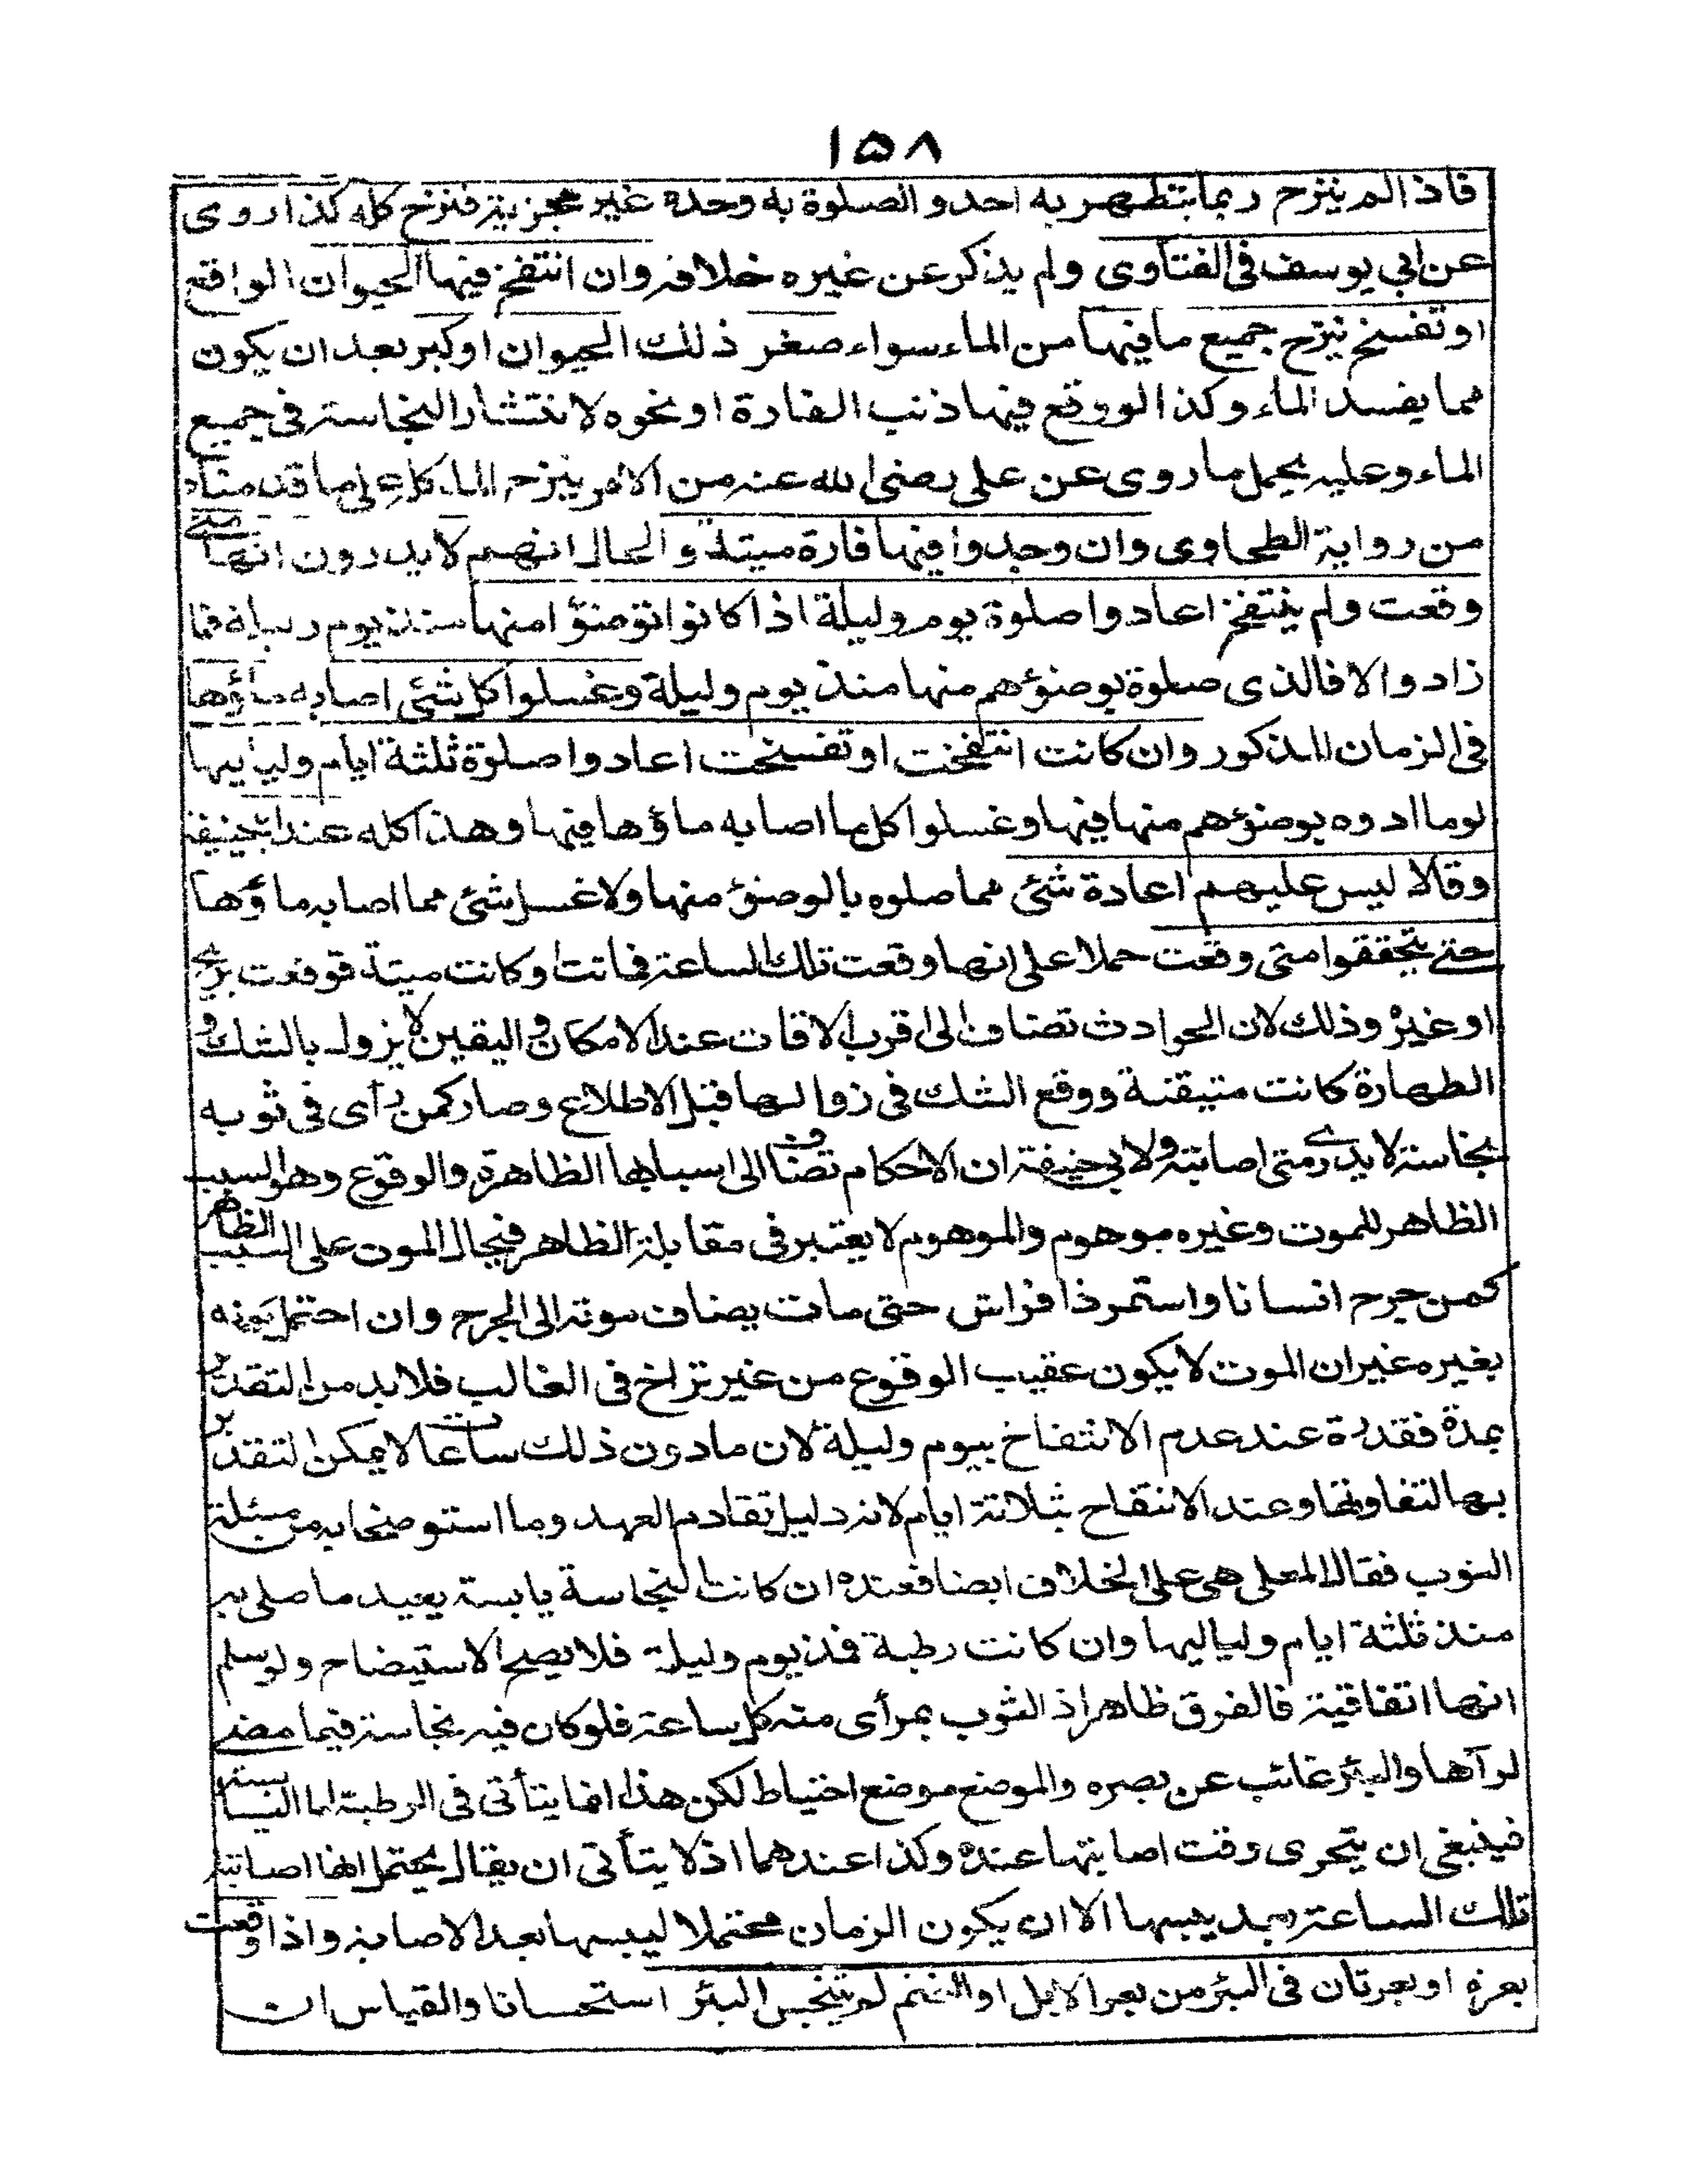 ١٥٨
فاذا لم ينزح ربما يتطهر به احد والصلوة به وحده غير مجزية فنزح كله كذا روى
عن ابي يوسف فى الفتاوى ولم يذكر عن غيره خلافه وان انتفخ فيها الحيوان الواقع
او تفسخ نزح جميع ما فيها من الماء سواء صغر ذلك الحيوان او كبر بعد ان يكون
مما يفسد الماء وكذا لو وقع فيها ذنب الفارة او نحوه لانتشار النجاسة فى جميع
الماء وعليه يحمل ما روى عن على رضى الله عنه من الامر بنزح الماء كله على ما قدمناه
من رواية الطحاوى وان وجدوا فيها فارة ميتة والحال انهم لا يدرون انها متى
وقعت ولم ينتفخ اعادوا صلوة يوم وليلة اذا كانوا توضؤا منها منذ يوم وليلة فما
زاد والا فالذى صلوة بوضوئهم منها منذ يوم وليلة وغسلوا كل شئى اصابه ماؤها
فى الزمان المذكور وان كانت انتفخت او تفسخت اعادوا صلوة ثلثة ايام ولياليها
لو ما ادوه بوضوئهم منها فيها وغسلوا كل ما اصابه ماؤها فيها وهذا كله عند ابيحنيفة
وقالا ليس عليهم اعادة شئى مما صلوه بالوضوء منها ولا غسل شئى مما اصابه ماؤها
حتى يتحققوا متى وقعت حملا على انها وقعت تلك الساعة فماتت او كانت ميتة فوقعت بريح
او غيره وذلك لان الحوادث تضاف الى اقرب الاقات عند الامكان واليقين لا يزول بالشك و
الطهارة كانت متيقنة ووقع الشك فى زوالها قبل الاطلاع وصار كمن رأى فى ثوبه
نجاسة لا يدرى متى اصابته ولابى حنيفة ان الاحكام تضاف الى اسبابها الظاهرة والوقوع وهو السبب
الظاهر للموت وغيره موهوم والموهوم لا يعتبر فى مقابلة الظاهر فيحال الموت على السبب الظاهر
كمن جرح انسانا واستمر ذا فراش حتى مات يضاف موته الى الجرح وان احتمل موته
بغيره غير ان الموت لا يكون عقيب الوقوع من غير تراخ فى الغالب فلا بد من التقدير
بمدة فقدره عند عدم الانتفاخ بيوم وليلة لان ما دون ذلك ساعات لا يمكن التقدير
بها لتفاوتها وعند الانتفاح بثلاثة ايام لانه دليل تقادم العهد وما استوضحا به من مسئلة
الثوب فقال المعلى هى على الخلاف ايضا فعنده ان كانت النجاسة يابسة يعيد ما صلى به
منذ ثلثة ايام ولياليها وان كانت رطبة فمذ يوم وليلة فلا يصح الاستيضاح ولو سلم
انها اتفاقية فالفرق ظاهر اذ الثوب بمرأى منه كل ساعة فلو كان فيه نجاسة فيما مضى
لرآها والبئر غائب عن بصره والموضع موضع احتياط لكن هذا انما يتأتى فى الرطبة اما اليابسة
فينبغى ان يتحرى وقت اصابتها عنده وكذا عندهما اذ لا يتأتى ان يقال يحتمل انها اصابته
تلك الساعة بعد يبسها الا ان يكون الزمان محتملا ليبسها بعد الاصابة واذا وقعت
بعرة او بعرتان فى البئر من بعر الابل او الغنم لم يتنجس البئر استحسانا والقياس ان